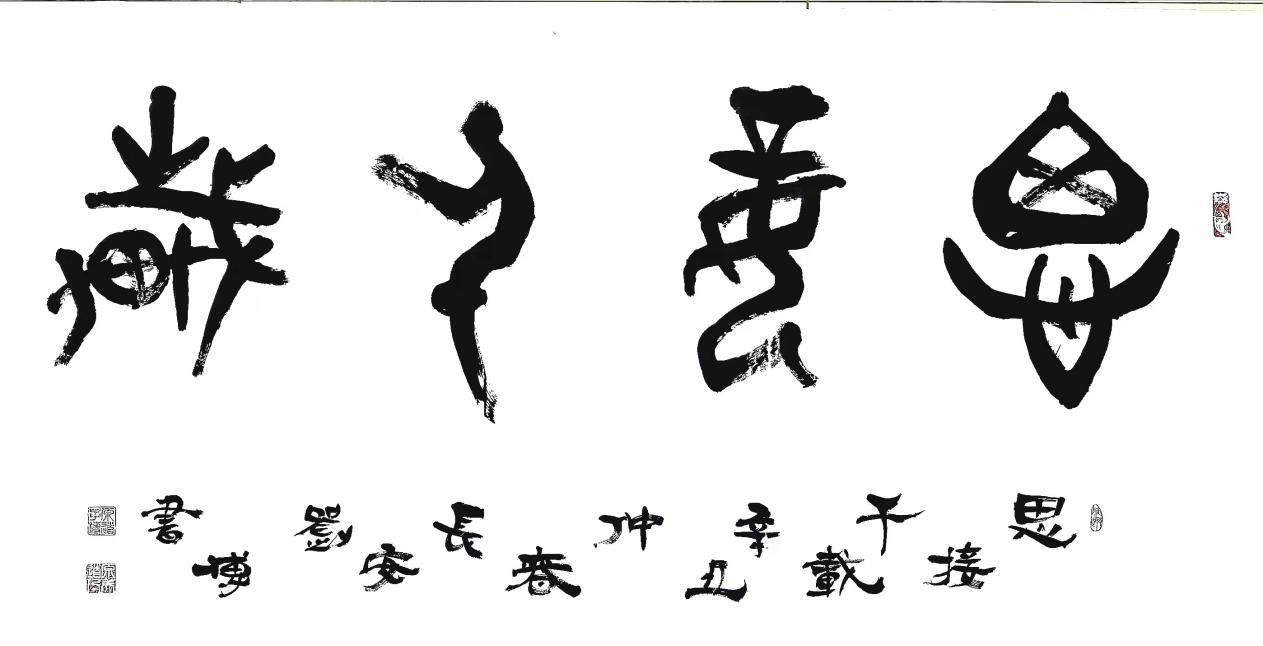 思接千載
思接千載辛丑仲春長安劉博書